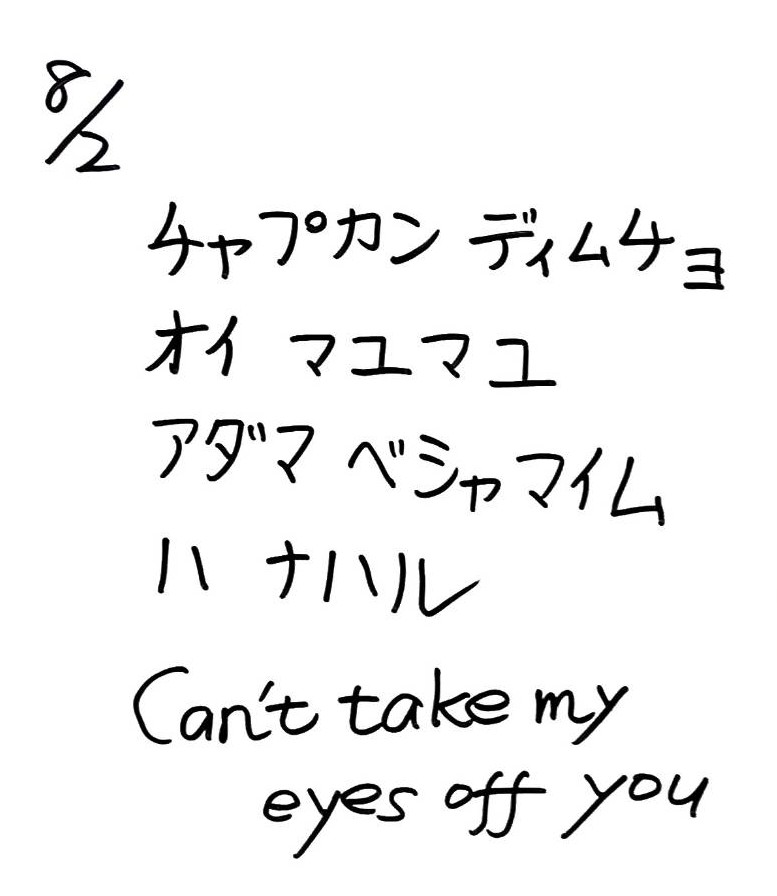 8/2
チャプカン ディムチョ
オイ マユマユ
アダマ ベシャマイム
ハ ナハル
Can't take my
eyes off you